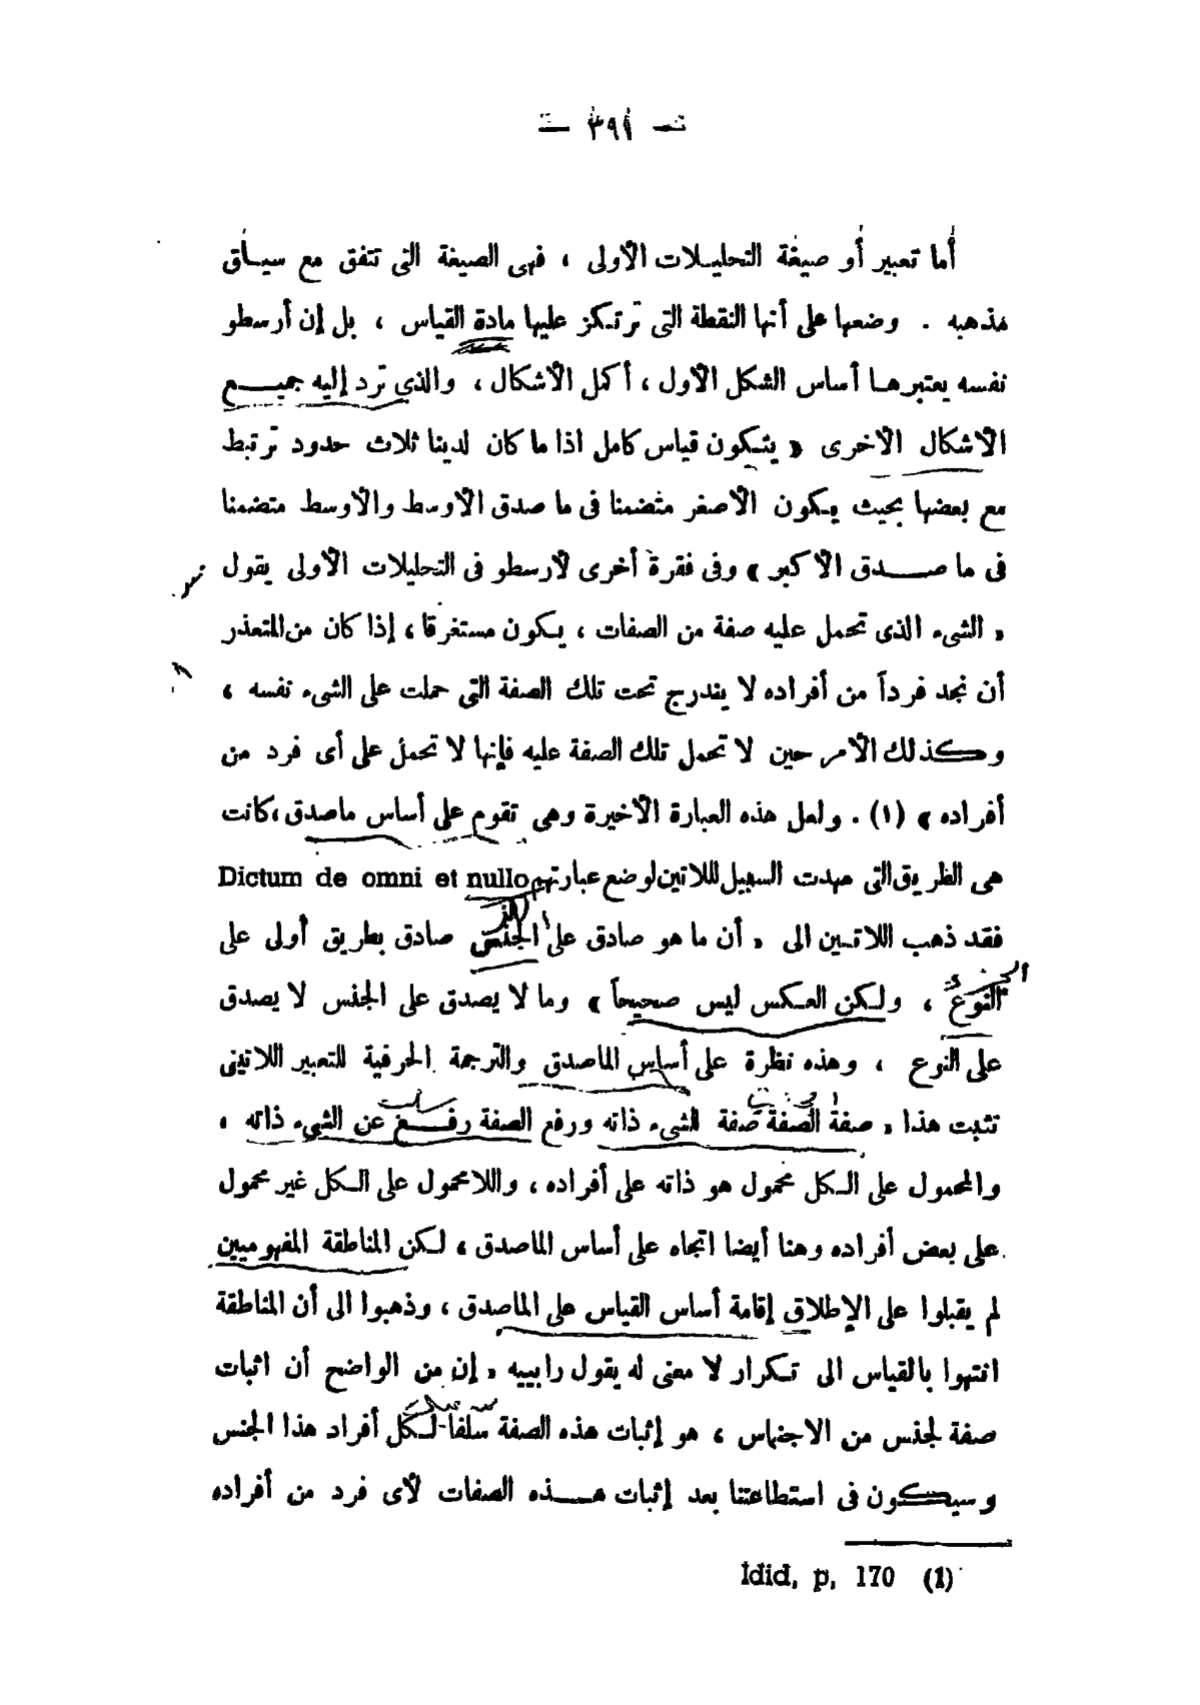 — ٣٩١ —
أما تعبير أو صيغة التحليلات الأولى ، فهى الصيغة التى تتفق مع سياق
مذهبه . وضعها على أنها النقطة التى ترتكز عليها مادة القياس ، بل إن أرسطو
نفسه يعتبرها أساس الشكل الأول ، أكمل الأشكال ، والذى ترد إليه جميع
الأشكال الأخرى « يتكون قياس كامل اذا ما كان لدينا ثلاث حدود ترتبط
مع بعضها بحيث يكون الأصغر متضمنا فى ما صدق الأوسط والأوسط متضمنا
فى ما صدق الأكبر » وفى فقرة أخرى لأرسطو فى التحليلات الأولى يقول
« الشىء الذى تحمل عليه صفة من الصفات ، يكون مستغرقا ، إذا كان من المتعذر
أن نجد فرداً من أفراده لا يندرج تحت تلك الصفة التى حملت على الشىء نفسه ،
وكذلك الأمر حين لا تحمل تلك الصفة عليه فإنها لا تحمل على أى فرد من
أفراده » (١) . ولعل هذه العبارة الأخيرة وهى تقوم على أساس ماصدق ، كانت
هى الطريق التى مهدت السبيل لللاتين لوضع عبارتهم Dictum de omni et nullo
فقد ذهب اللاتين الى « أن ما هو صادق على الجنس صادق بطريق أولى على
النوع ، ولكن العكس ليس صحيحاً » وما لا يصدق على الجنس لا يصدق
على النوع ، وهذه نظرة على أساس الماصدق والترجمة الحرفية للتعبير اللاتينى
تثبت هذا « صفة الصفة صفة للشىء ذاته ورفع الصفة رفع عن الشىء ذاته ،
والمحمول على الكل محمول هو ذاته على أفراده ، واللامحمول على الكل غير محمول
على بعض أفراده وهنا أيضا اتجاه على أساس الماصدق ، لكن المناطقة المفهوميين
لم يقبلوا على الإطلاق إقامة أساس القياس على الماصدق ، وذهبوا الى أن المناطقة
انتهوا بالقياس الى تكرار لا معنى له يقول رابييه « إن من الواضح أن اثبات
صفة لجنس من الاجناس ، هو إثبات هذه الصفة سلفا لكل أفراد هذا الجنس
وسيكون فى استطاعتنا بعد إثبات هذه الصفات لأى فرد من أفراده
Idid, p, 170 (1)